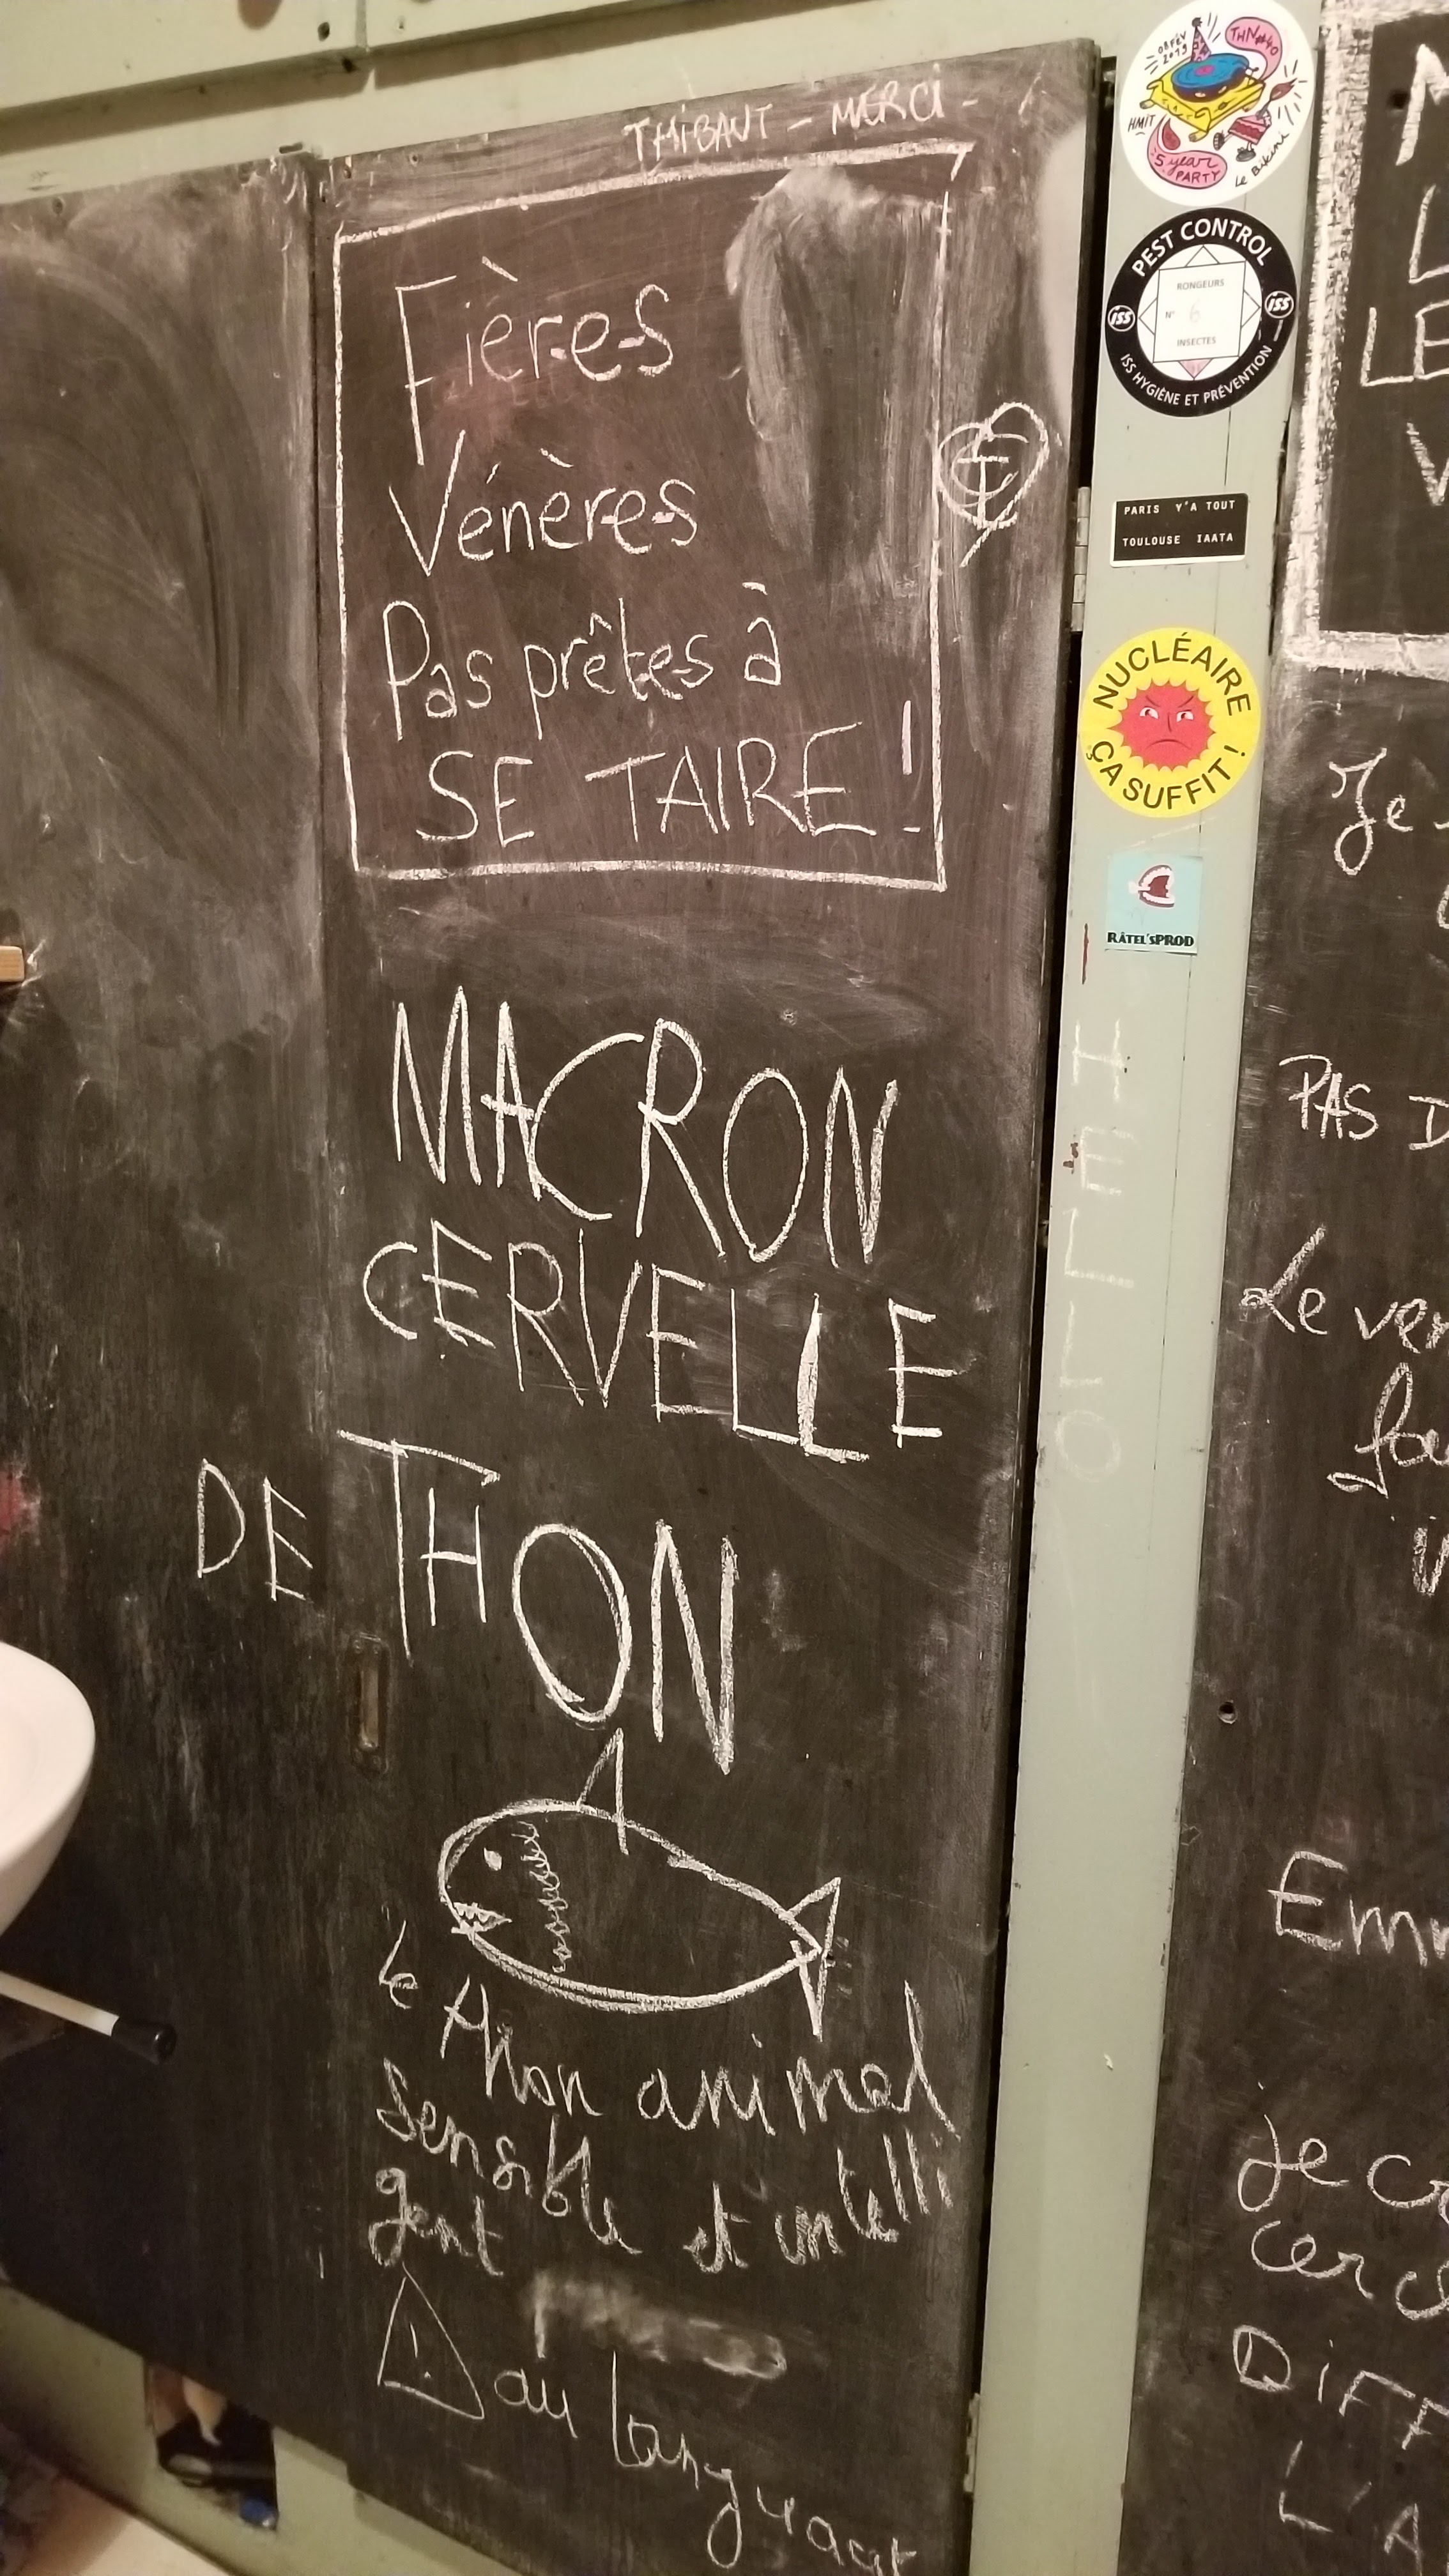 THIBAUT - MERCI -
Fières
Vénères
Pas prêtes à
SE TAIRE !
MACRON
CERVELLE
DE THON
le thon animal
sensible et intelli
gent
! au language
08 FÉV 2019
TWN#40
HMIT
5 year
PARTY
Le Bikini
PEST CONTROL
RONGEURS
N° 6
INSECTES
iss
iss
ISS HYGIÈNE ET PRÉVENTION
PARIS Y'A TOUT
TOULOUSE IAATA
NUCLÉAIRE
ÇA SUFFIT !
RÂTEL'sPROD
HELLO
L
LE
V
Je
PAS D
Le ver
Emm
je co
DIFF
L'A